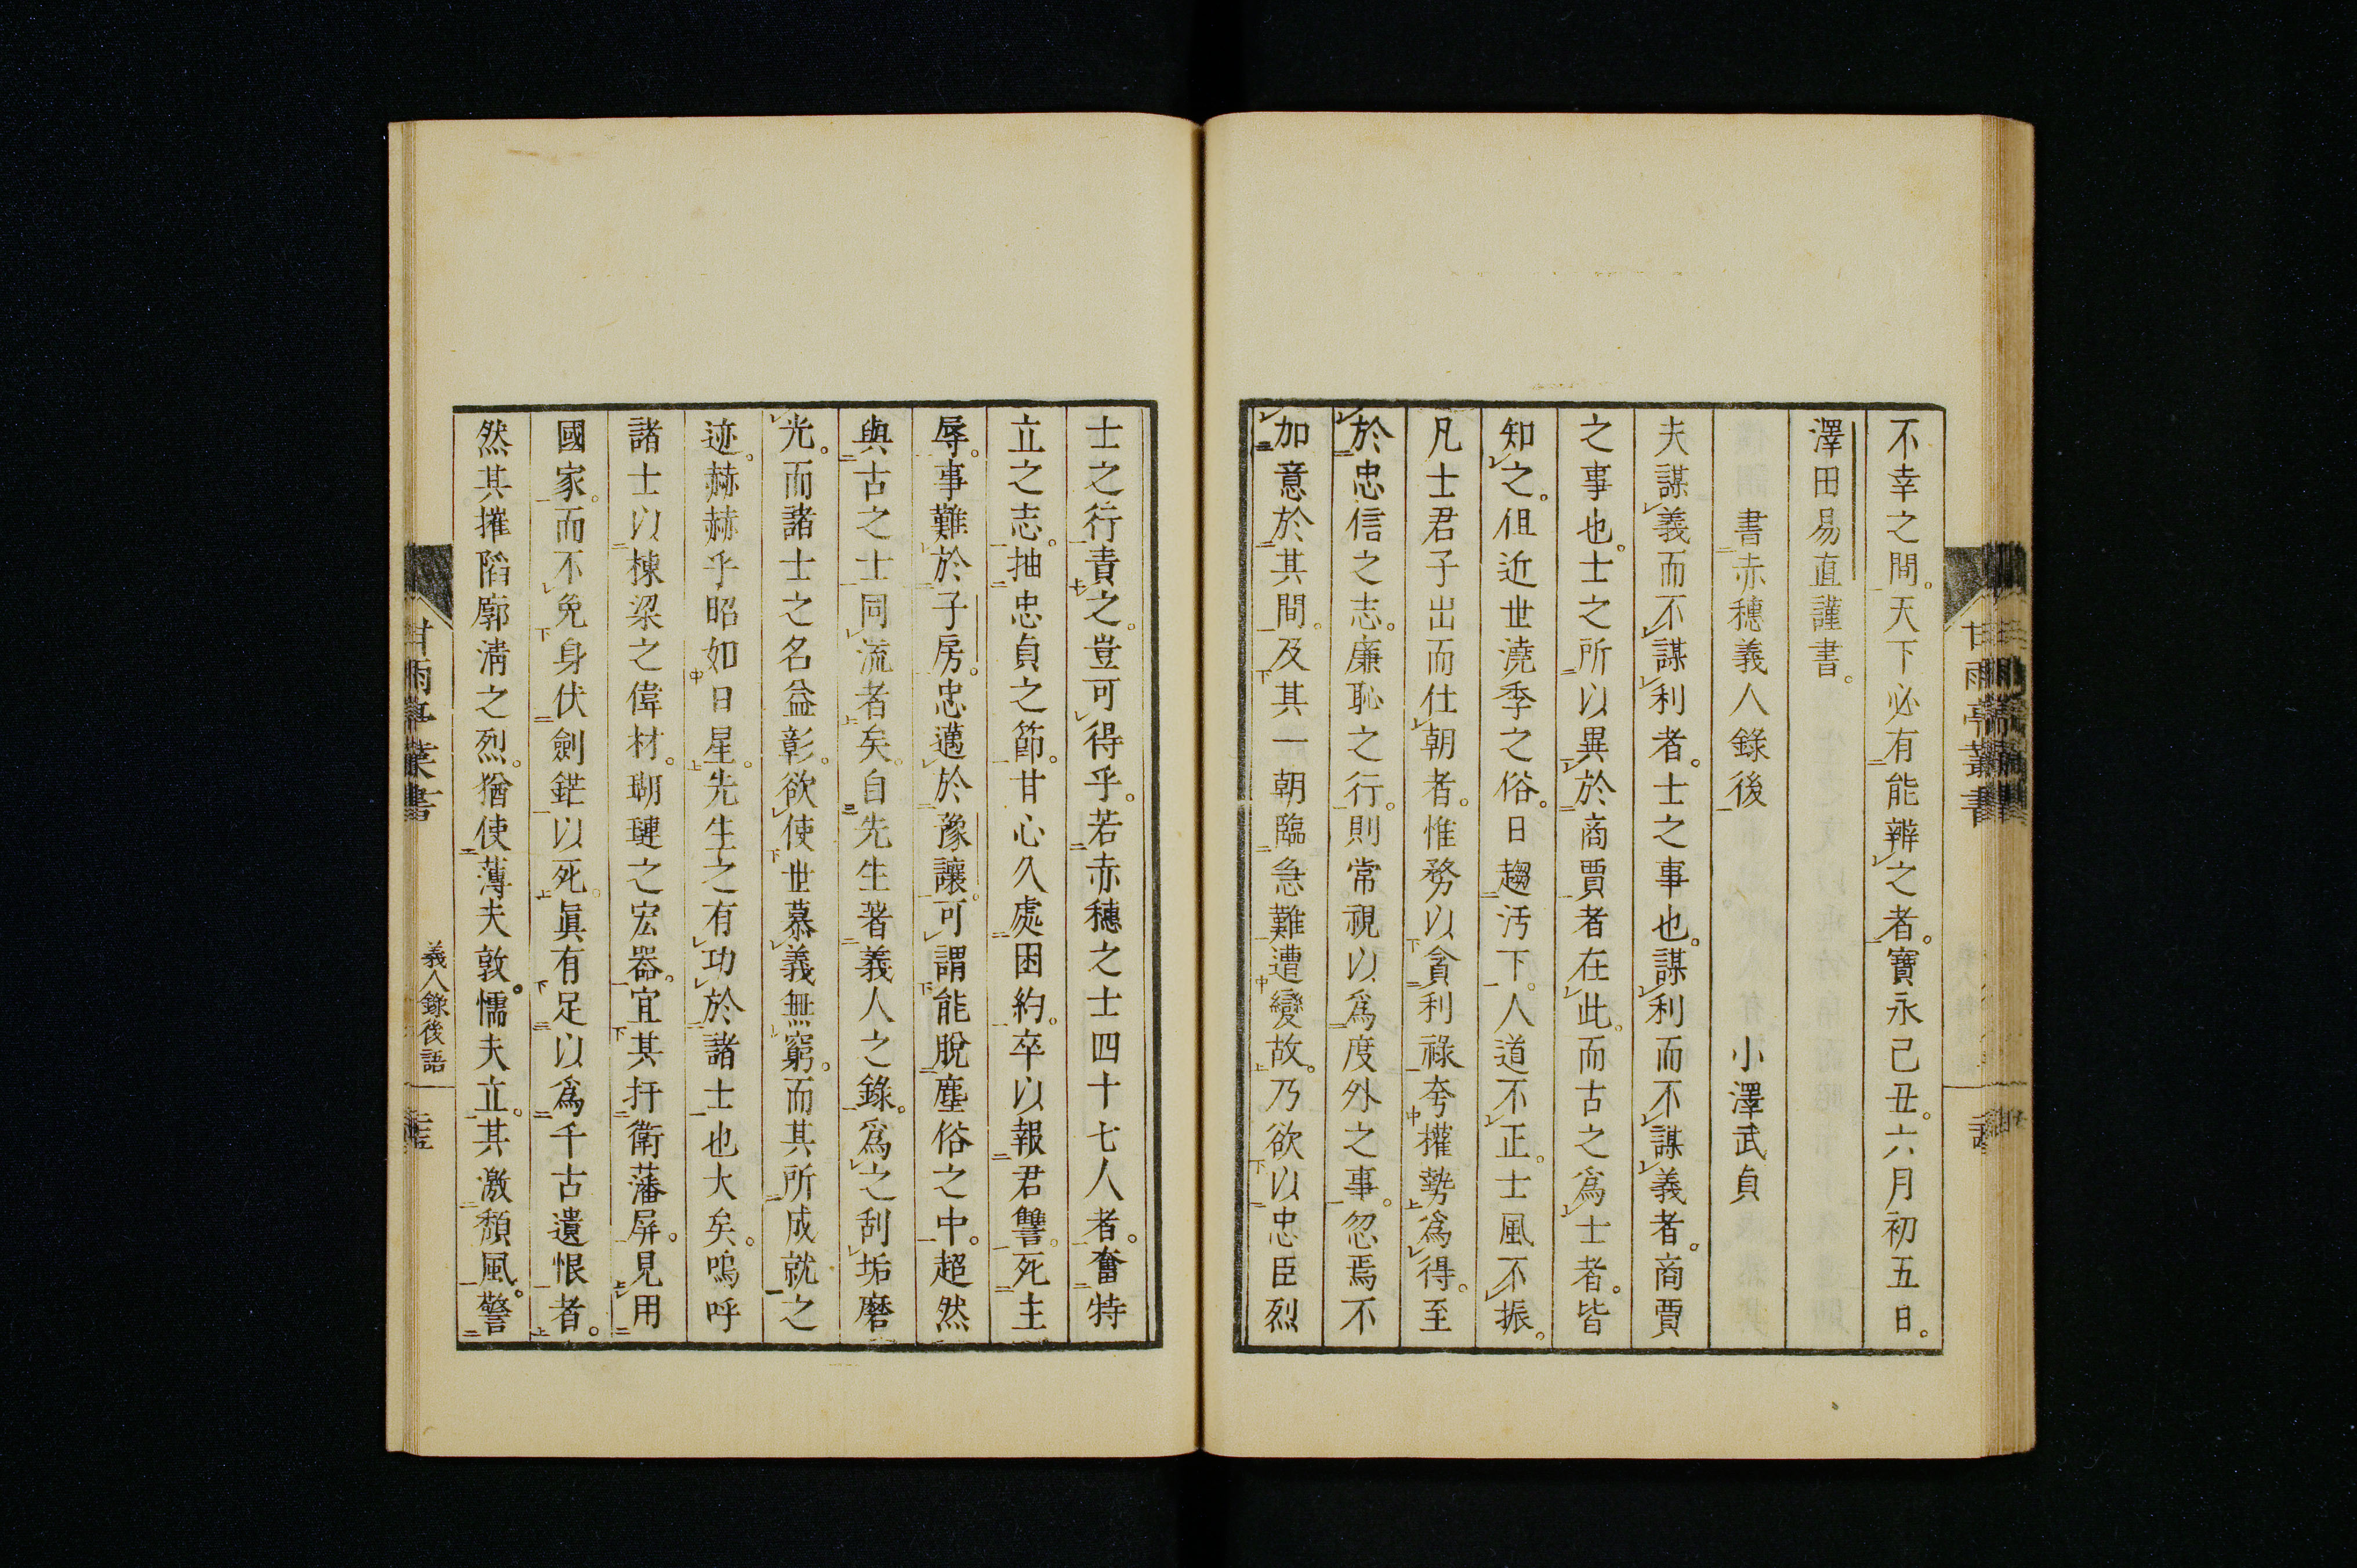 不幸之間。天下必有能辨之者。寶永己丑。六月初五日。
澤田易直謹書。
書赤穗義人錄後
小澤武貞
夫謀義而不謀利者。士之事也。謀利而不謀義者。商賈
之事也。士之所以異於商賈者在此。而古之爲士者。皆
知之。但近世澆季之俗。日趨汚下。人道不正。士風不振。
凡士君子出而仕朝者。惟務以貪利祿夸權勢爲得。至
於忠信之志。廉恥之行。則常視以爲度外之事。忽焉不
加意於其間。及其一朝臨急難遭變故。乃欲以忠臣烈
士之行責之。豈可得乎。若赤穗之士四十七人者。奮特
立之志。抽忠貞之節。甘心久處困約。卒以報君讐。死主
辱。事難於子房。忠邁於豫讓。可謂能脫塵俗之中。超然
與古之士同流者矣。自先生著義人之錄。爲之刮垢磨
光。而諸士之名益彰。欲使世慕義無窮。而其所成就之
迹。赫赫乎昭如日星。先生之有功於諸士也大矣。嗚呼
諸士以棟梁之偉材。瑚璉之宏器。宜其扞衛藩屏。見用
國家。而不免身伏劍鋩以死。眞有足以爲千古遺恨者。
然其摧陷廓淸之烈。猶使薄夫敦。懦夫立。其激頹風。警
甘雨亭叢書
甘雨亭叢書
義人錄後語